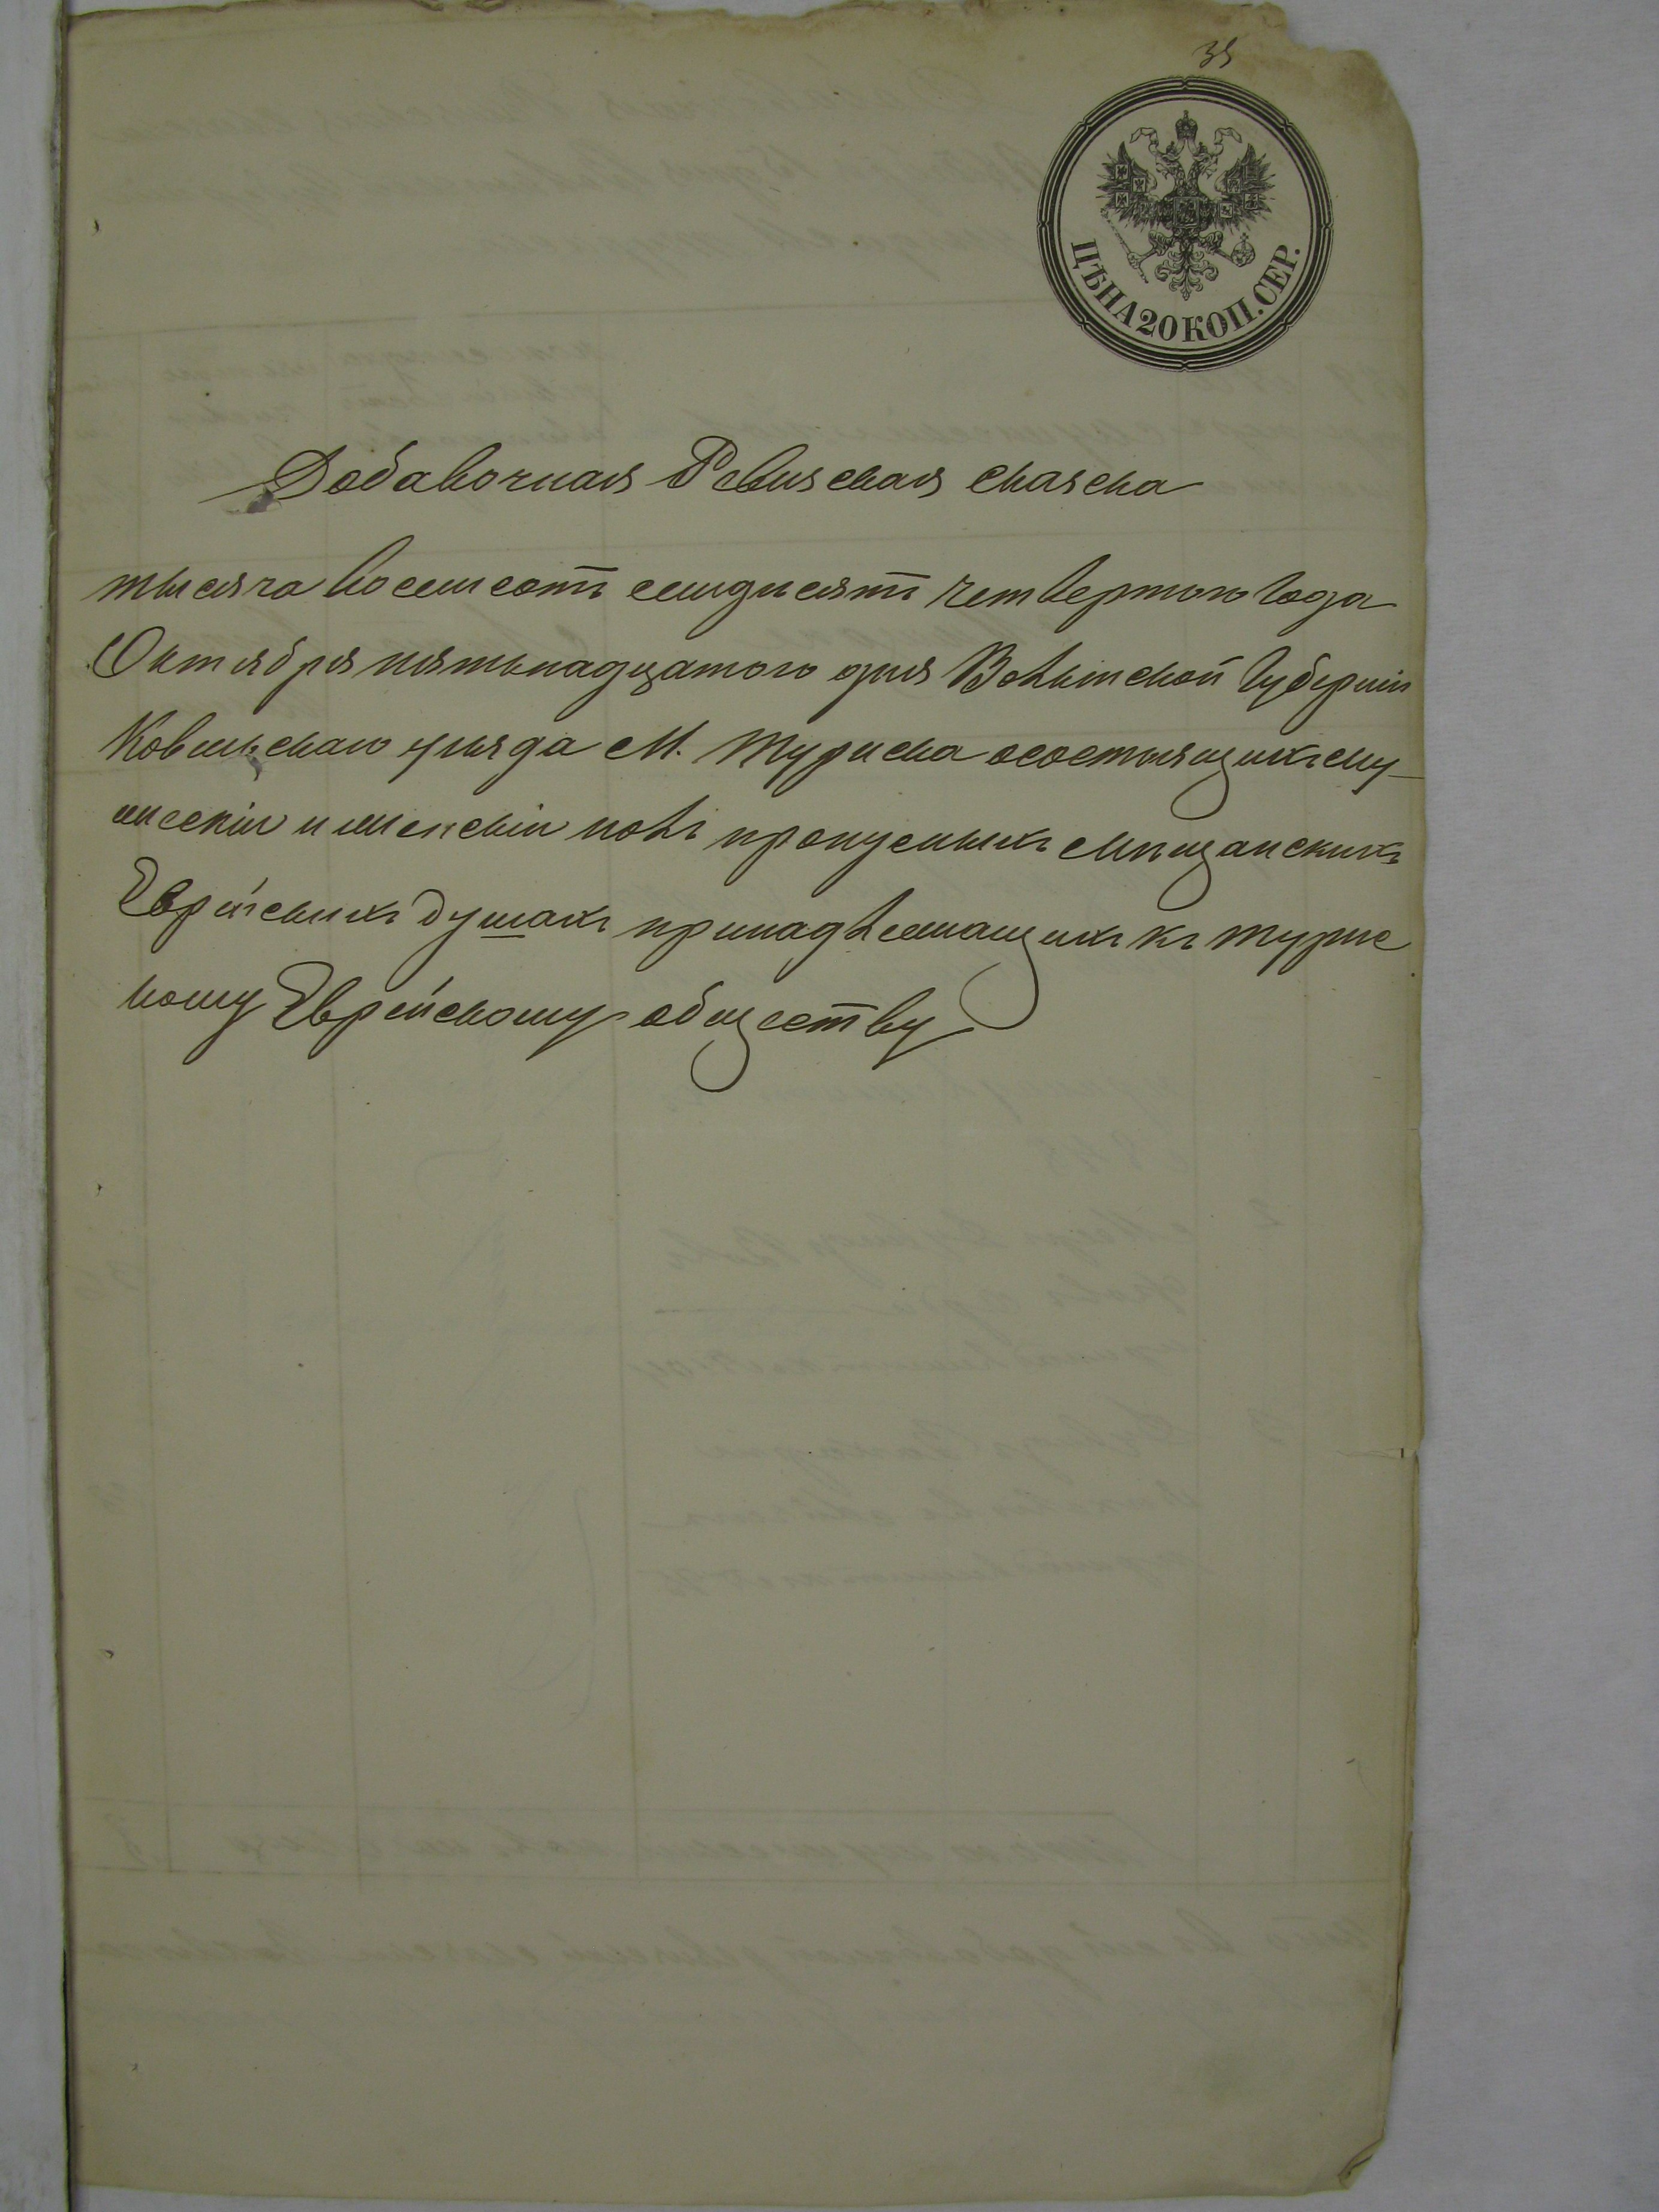 35
ЦѢНА 20 КОП. СЕР.
Добавочная Ревизская сказка
тысяча восемсотъ семдисятъ четвертого года
Октября пятьнадцатого дня Волынской Губерніи
Ковельскаго уѣзда М. Туриска осостыящихъ му-
жескіи и женскіи полъ пропусныхъ Мѣщанскихъ
Еврейскихъ душахъ принадлежащихъ къ турис
кому Еврейскому обществу